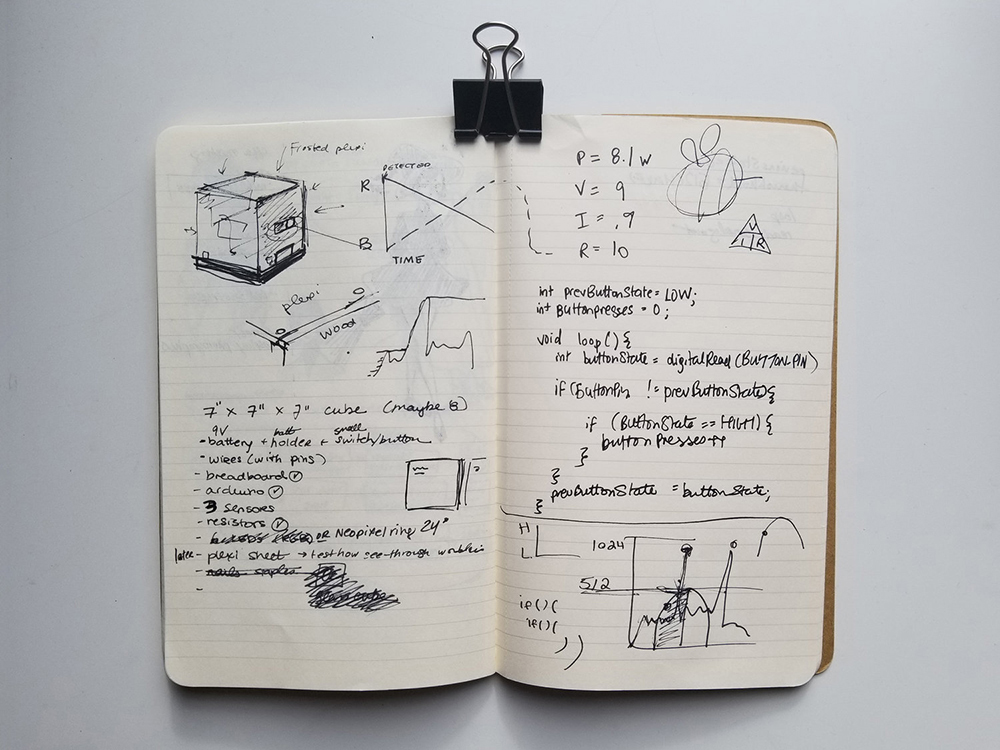 Frosted plexi
DETECTED
R
B
TIME
plexi
wood
7" x 7" x 7" cube (maybe 8)
9V batt small
- battery + holder + switch/button
- wires (with pins)
- breadboard ✓
- arduino ✓
- 3 sensors
- resistors ✓
- OR Neopixel ring 24"
later - plexi sheet → test how see-through
-
P = 8.1 W
V = 9
I = .9
R = 10
V
I R
int prevButtonState = LOW;
int Buttonpresses = 0;
void loop() {
int buttonState = digitalRead (BUTTONPIN)
if (ButtonPin != prevButtonState) {
if (ButtonState == HIGH) {
buttonPresses++
}
}
prevButtonState = buttonState;
}
H
L
1024
512
if ( ) (
if ( ) (
) )